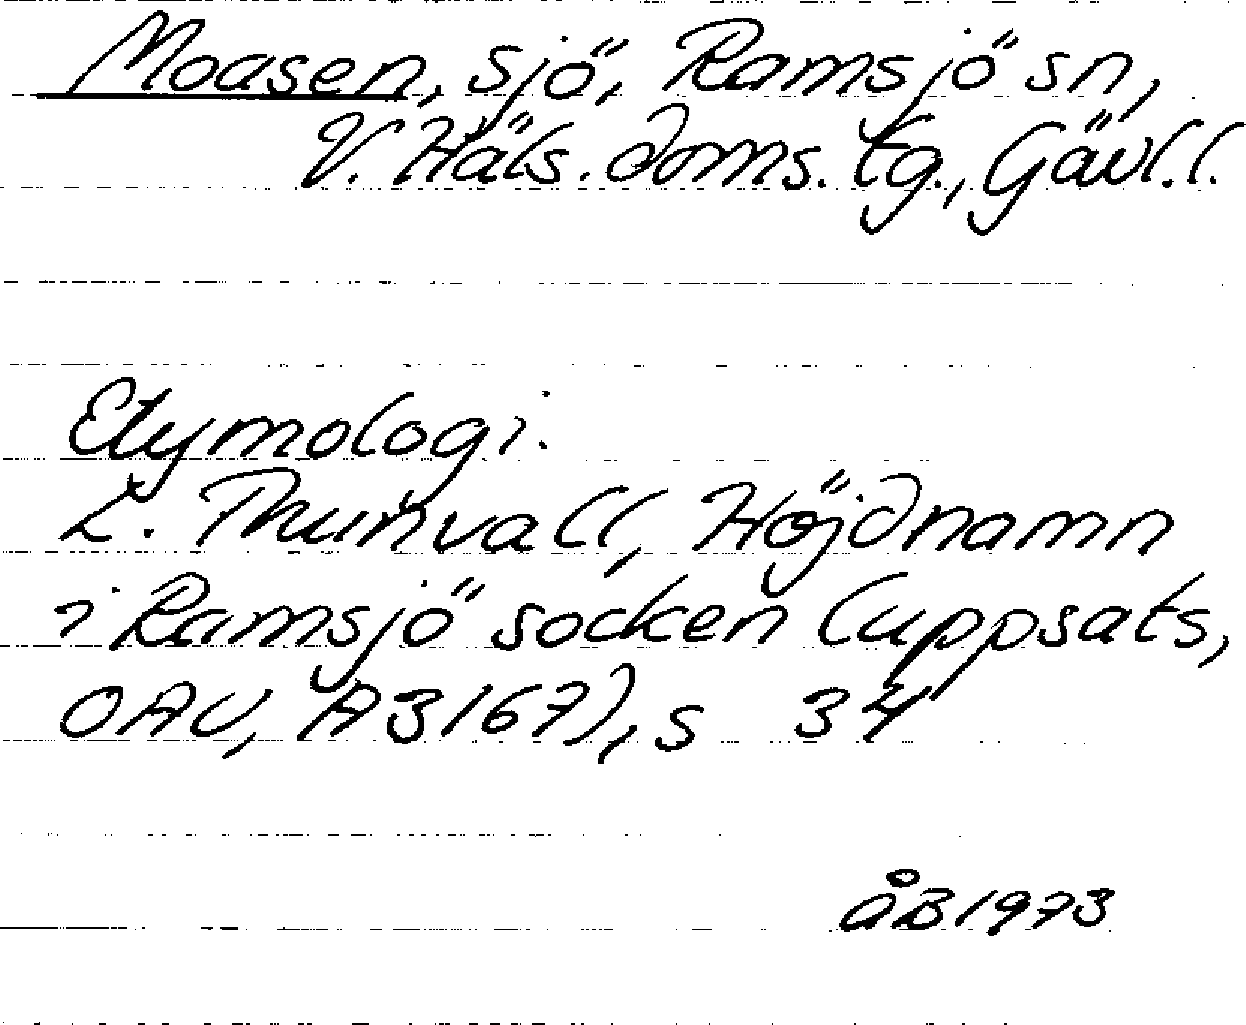 Moasen, sjö, Ramsjö sn,
V. Häls. doms. tg., Gävl. l.
Etymologi:
L. Thunvall, Höjdnamn
i Ramsjö socken (uppsats,
OAU, A3167), s 34
ÅB 1973